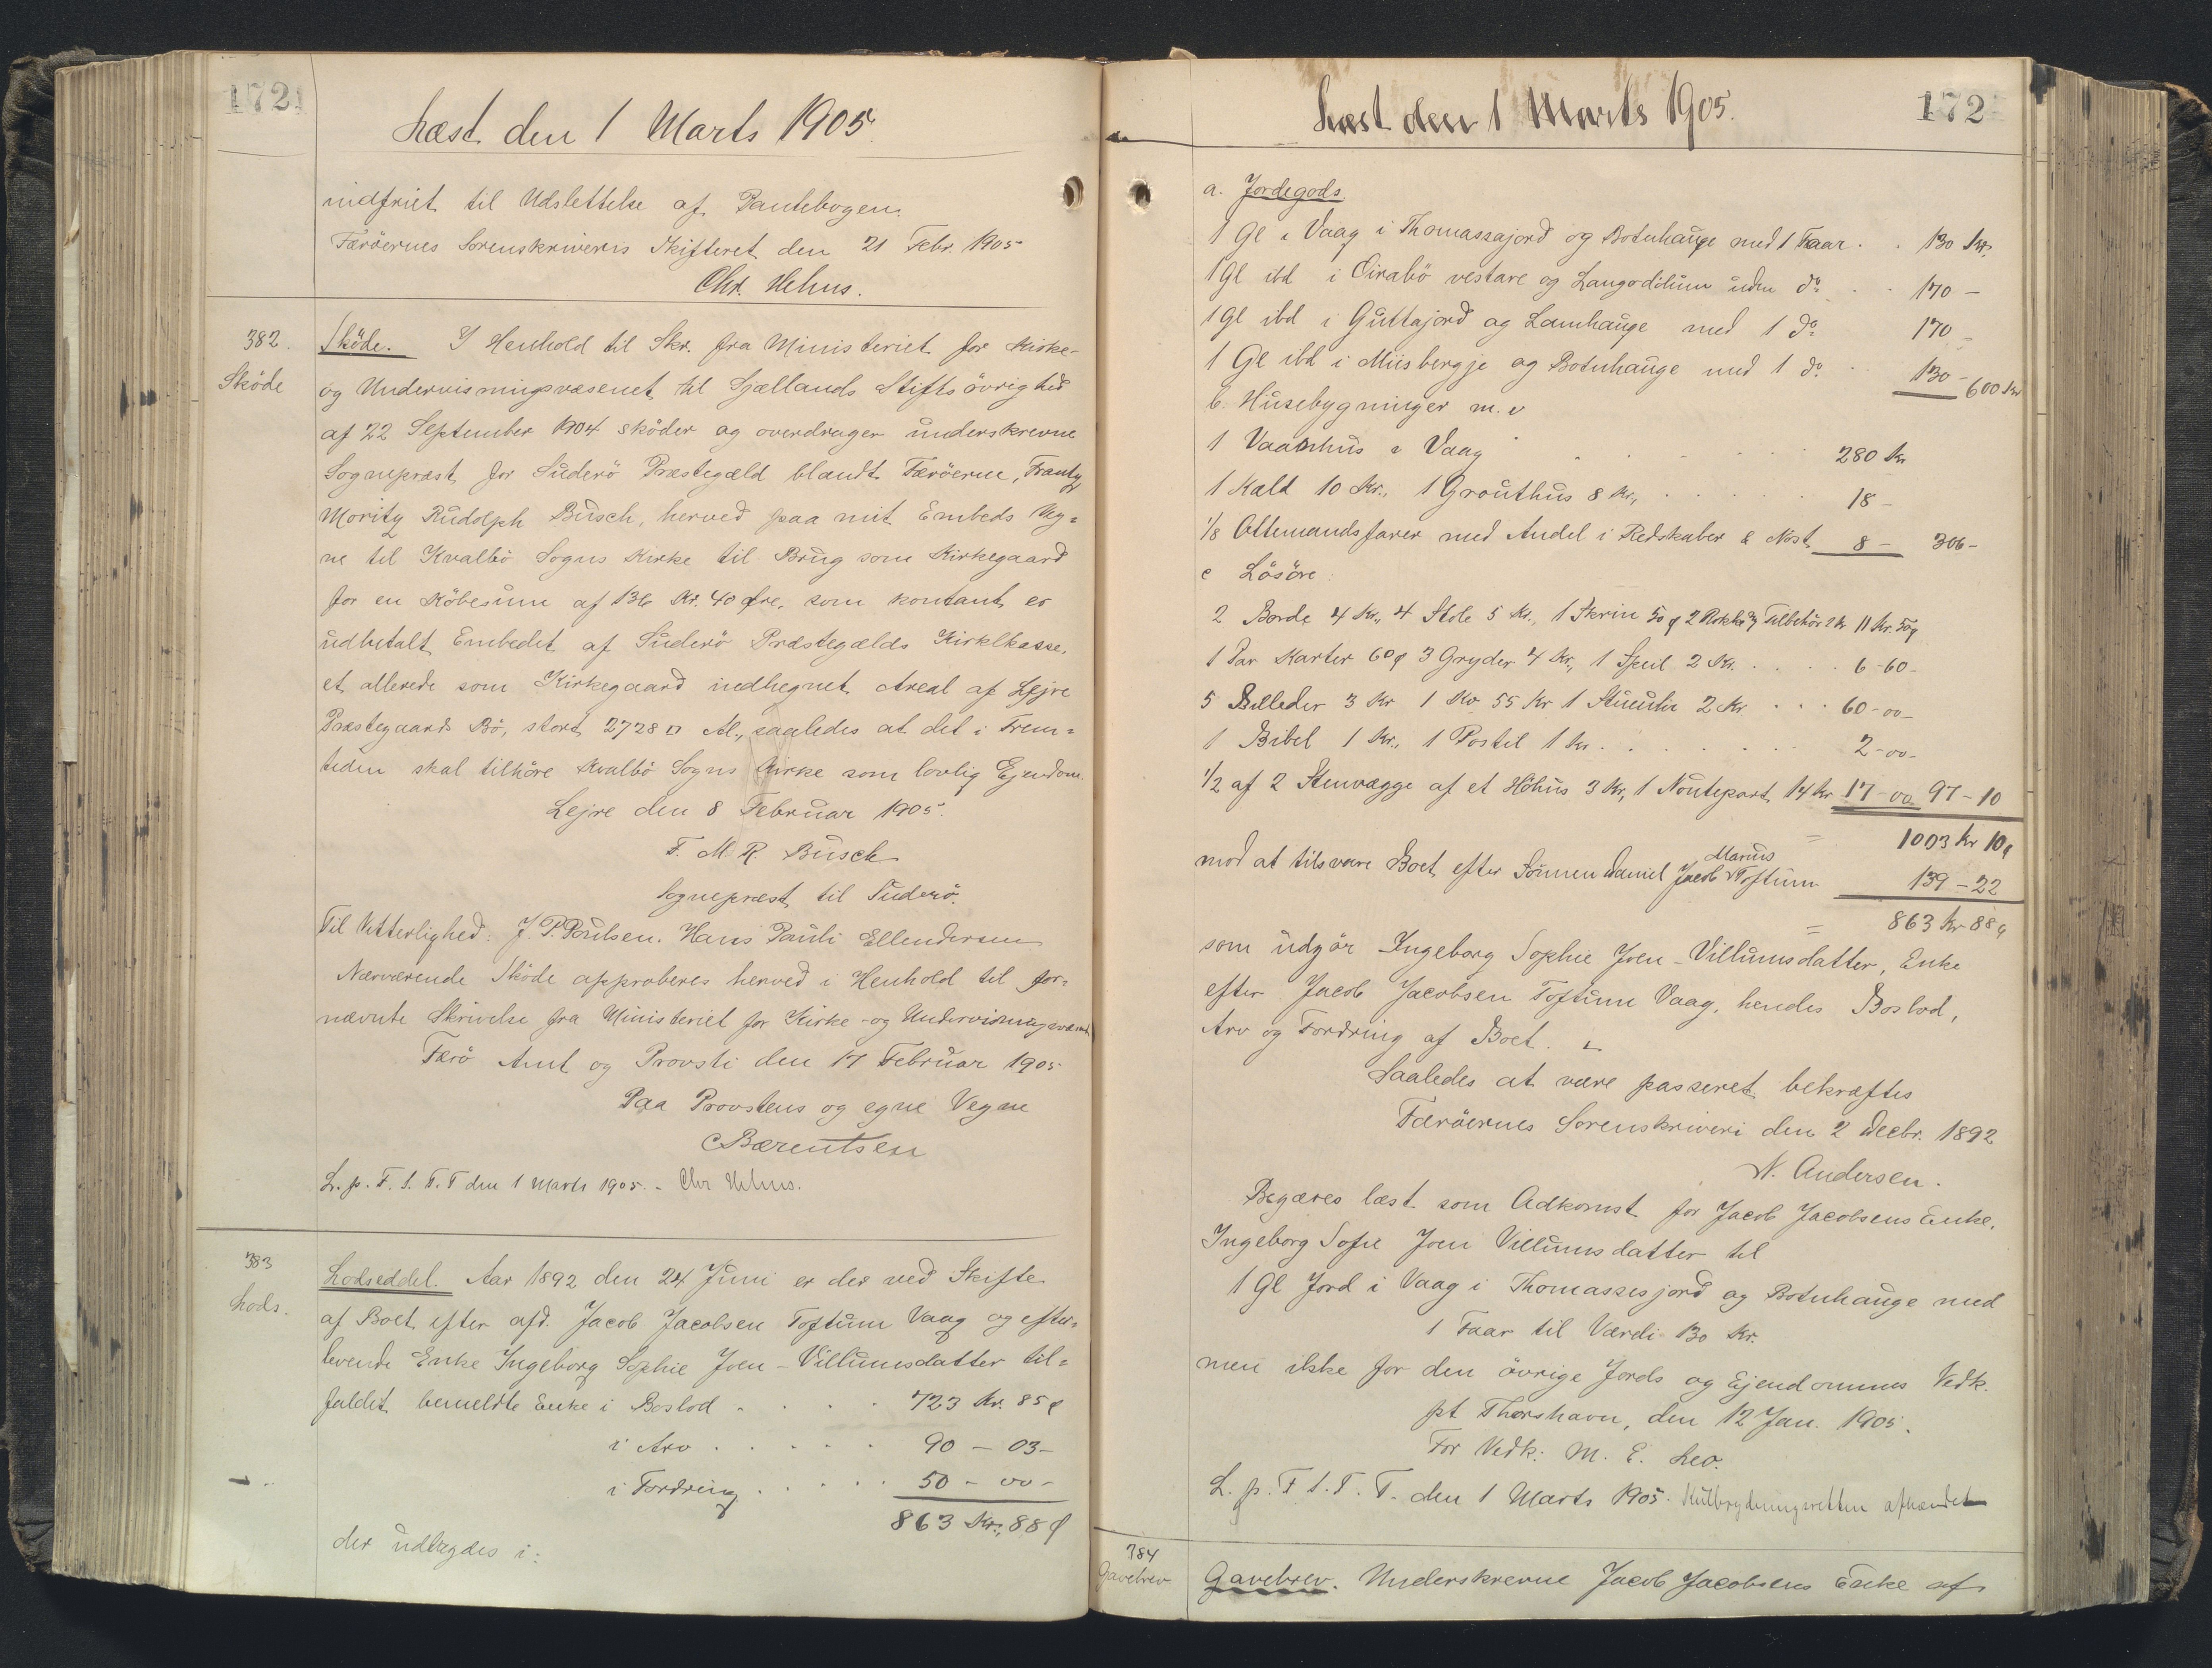 172
Læst den 1 Marts 1905.
indfriet til Udslettelse af Pantebogen.
Færöernes Sorenskriveris Skifteret den 21 Febr. 1905
Chr. Hehus.
382.
Sköde
Sköde. I Henhold til Skr. fra Ministeriet for Kirke-
og Undervisningsvæsenet til Sjællands Stiftsövrighed
af 22 September 1904 sköder og overdrager underskrevne
Sognepræst for Suderö Præstegæld blandt Færöerne, Frantz
Moritz Rudolph Busch, herved paa mit Embeds Veg=
ne til Kvalbö Sogns Kirke til Brug som Kirkegaard
for en Köbesum af 136 Kr. 40 Øre, som kontant er
udbetalt Embedet af Suderö Præstegælds Kirkekasse,
et allerede som Kirkegaard indhegnet Areal af Lejre
Præstegaards Bö, stort 2728 □ Al., saaledes at det i Frem=
tiden skal tilhöre Kvalbö Sogns Kirke som lovlig Ejendom.
Lejre den 8 Februar 1905.
F. M. R. Busch
Sognepræst til Suderö.
Til Vitterlighed: J. P. Poulsen. Hans Pauli Ellendersen
Nærværende Sköde approberes herved i Henhold til for=
nævnte Skrivelse fra Ministeriet for Kirke- og Undervisningsvæsenet
Færö Amt og Provsti den 17 Februar 1905
Paa Provstens og egne Vegne
C Bærentsen
L. p. F. S. T. T den 1 Marts 1905. - Chr Hehus.
383
Lods.
Lodseddel. Aar 1892 den 24 Juni er der ved Skifte
af Boet efter afd. Jacob Jacobsen Toftum Vaag og efter=
levende Enke Ingeborg Sophie Joen-Villumsdatter til=
faldet bemeldte Enke i Boslod . . . . 723 Kr. 85 ø
i Arv . . . . . 90 - 03 -
i Fordring . . . . . 50 - 00 -
863 Kr. 88 ø
der udlægdes i:
Læst den 1 Marts 1905.
172
a. Jordegods.
1 Gl i Vaag i Thomassajord og Botnhauge med 1 Faar . . 130 Kr.
1 Gl ibd i Öirabö vestare og Langodilum uden do . . 170 -
1 Gl ibd i Guttajord og Lamhauge med 1 do 170 -
1 Gl ibd i Miisbergje og Botnhauge med 1 do . . 130 - 600 Kr
b. Husebygninger m. v
1 Vaanhus i Vaag . . . . . . 280 Kr
1 Kald 10 Kr., 1 Grouthus 8 Kr., . . . . 18 -
1/8 Ottemandsfarer med Andel i Redskaber & Nöst 8 - 306 -
c Lösöre:
2 Borde 4 Kr., 4 Stole 5 Kr., 1 Skrin 50 ø 2 Rokke og Tilbehör 2 Kr 11 Kr. 50 ø
1 Par Karter 60 ø 3 Gryder 4 Kr., 1 Speil 2 Kr. . . . . 6 - 60 -
5 Billeder 3 Kr 1 Ko 55 Kr 1 Stueuhr 2 Kr . . . 60 - 00 -
1 Bibel 1 Kr., 1 Postil 1 Kr. . . . . . . 2 - 00 -
1/2 af 2 Stenvægge af et Höhus 3 Kr., 1 Noutepart 14 Kr 17 - 00 97 - 10
= 1003 Kr 10 ø
mod at tilsvare Boet efter Sönnen Daniel Jacob Marius Toftum 139 - 22
= 863 Kr 88 ø
som udgör Ingeborg Sophie Joen-Villumsdatter, Enke
efter Jacob Jacobsen Toftum Vaag, hendes Boslod,
Arv og Fordring af Boet.
Saaledes at være passeret bekræftes
Færöernes Sorenskriveri den 2 Decbr. 1892
N. Andersen.
Begæres læst som Adkomst for Jacob Jacobsens Enke,
Ingeborg Sofie Joen Villumsdatter til
1 Gl Jord i Vaag i Thomassesjord og Botnhauge med
1 Faar til Værdi 130 Kr.
men ikke for den övrige Jords og Ejendommes Vedk.
pt Thorshavn, den 12 Jan. 1905.
For Vedk: M. E. Leo.
L. p. F. S. T. T. den 1 Marts 1905. Kulbrydningsretten afhændet
384
Gavebrev
Gavebrev. Underskrevne Jacob Jacobsens Enke af